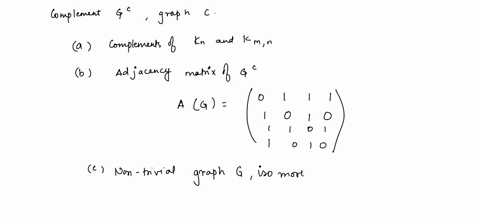 Complement G^c, graph G.
(a) Complements of Kn and Km,n
(b) Adjacency matrix of G^c
A (G) = 
0 1 1 1
1 0 1 0
1 1 0 1
1 0 1 0
(c) Non-trivial graph G, iso more